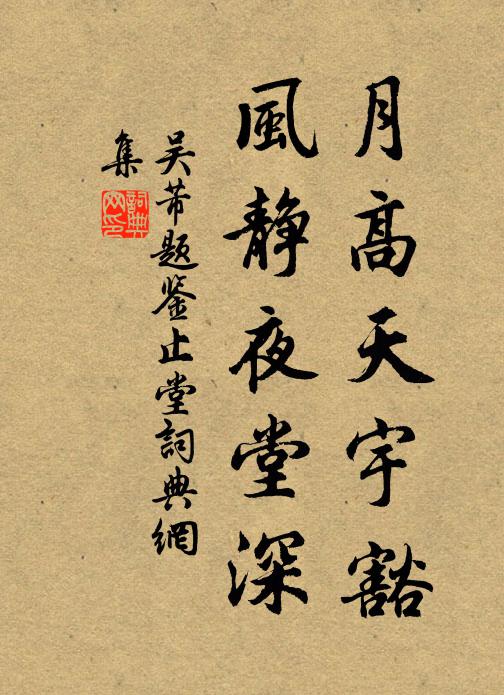 月高天宇豁
風静夜堂深
吴芾题鉴止堂詞典網
集
詞典
网印